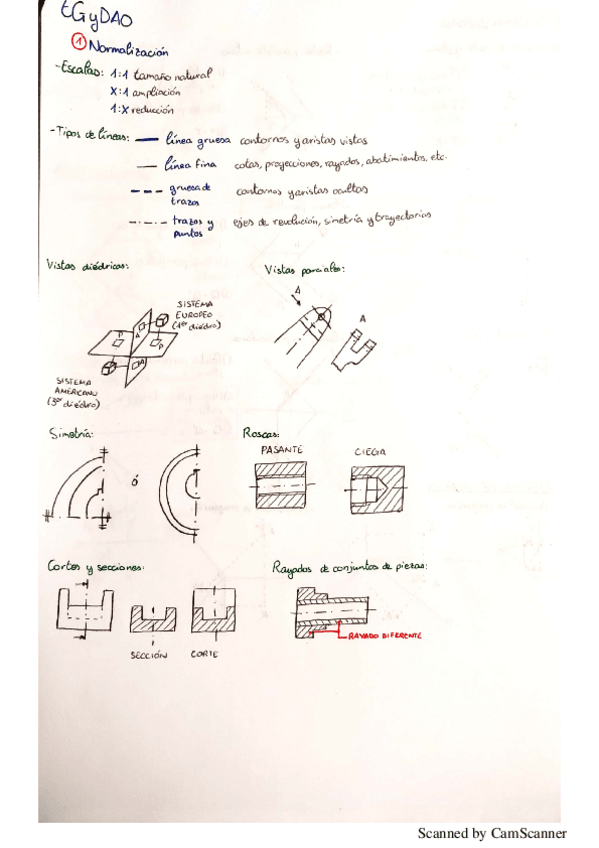 EGyDAO
1 Normalización
-Escalas: 1:1 tamaño natural
X:1 ampliación
1:X reducción
-Tipos de líneas: línea gruesa contornos y aristas vistas
línea fina cotas, proyecciones, rayados, abatimientos, etc.
gruesa de trazos contornos y aristas ocultos
trazos y puntos ejes de revolución, simetría y trayectorias
Vistas diédricas:
Vistas parciales:
SISTEMA
EUROPEO
(1er diedro)
P
A
P
A
SISTEMA
AMERICANO
(3er diedro)
A
A
Simetría:
ó
Roscas:
PASANTE
CIEGA
Cortes y secciones:
SECCIÓN
CORTE
Rayados de conjuntos de piezas:
RAYADO DIFERENTE
Scanned by CamScanner